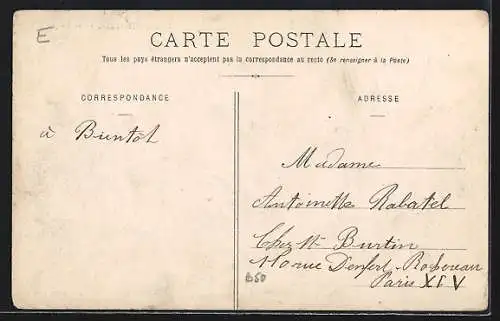 E
CARTE POSTALE
Tous les pays étrangers n'acceptent pas la correspondance au recto (Se renseigner à la Poste)
CORRESPONDANCE
ADRESSE
à Bientôt
Madame
Antoinette Rabatel
Chez Burtin
rue Denfert-Rochereau
Paris XIV
B50